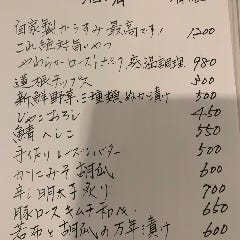 自家製からすみ 最高です! 1200
これ絶対旨いやつ
やわらかローストポーク 低温調理 980
蓮根チップス 500
新鮮野菜 三種類 ぬか漬け 500
じゃこおろし 450
鯖へしこ 550
手作りレーズンバター 500
かにみそ胡瓜 600
辛し明太子炙り 700
豚ロースキムチ和え 650
若布と胡瓜の万年漬け 600